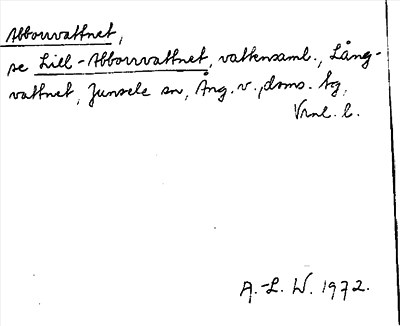 Abborrvattnet,
se Lill-Abborrvattnet, vattensaml., Lång-
vattnet, Junsele sn, Ång. v., doms. tg,
Vrnl. l.
A.-L. W. 1972.